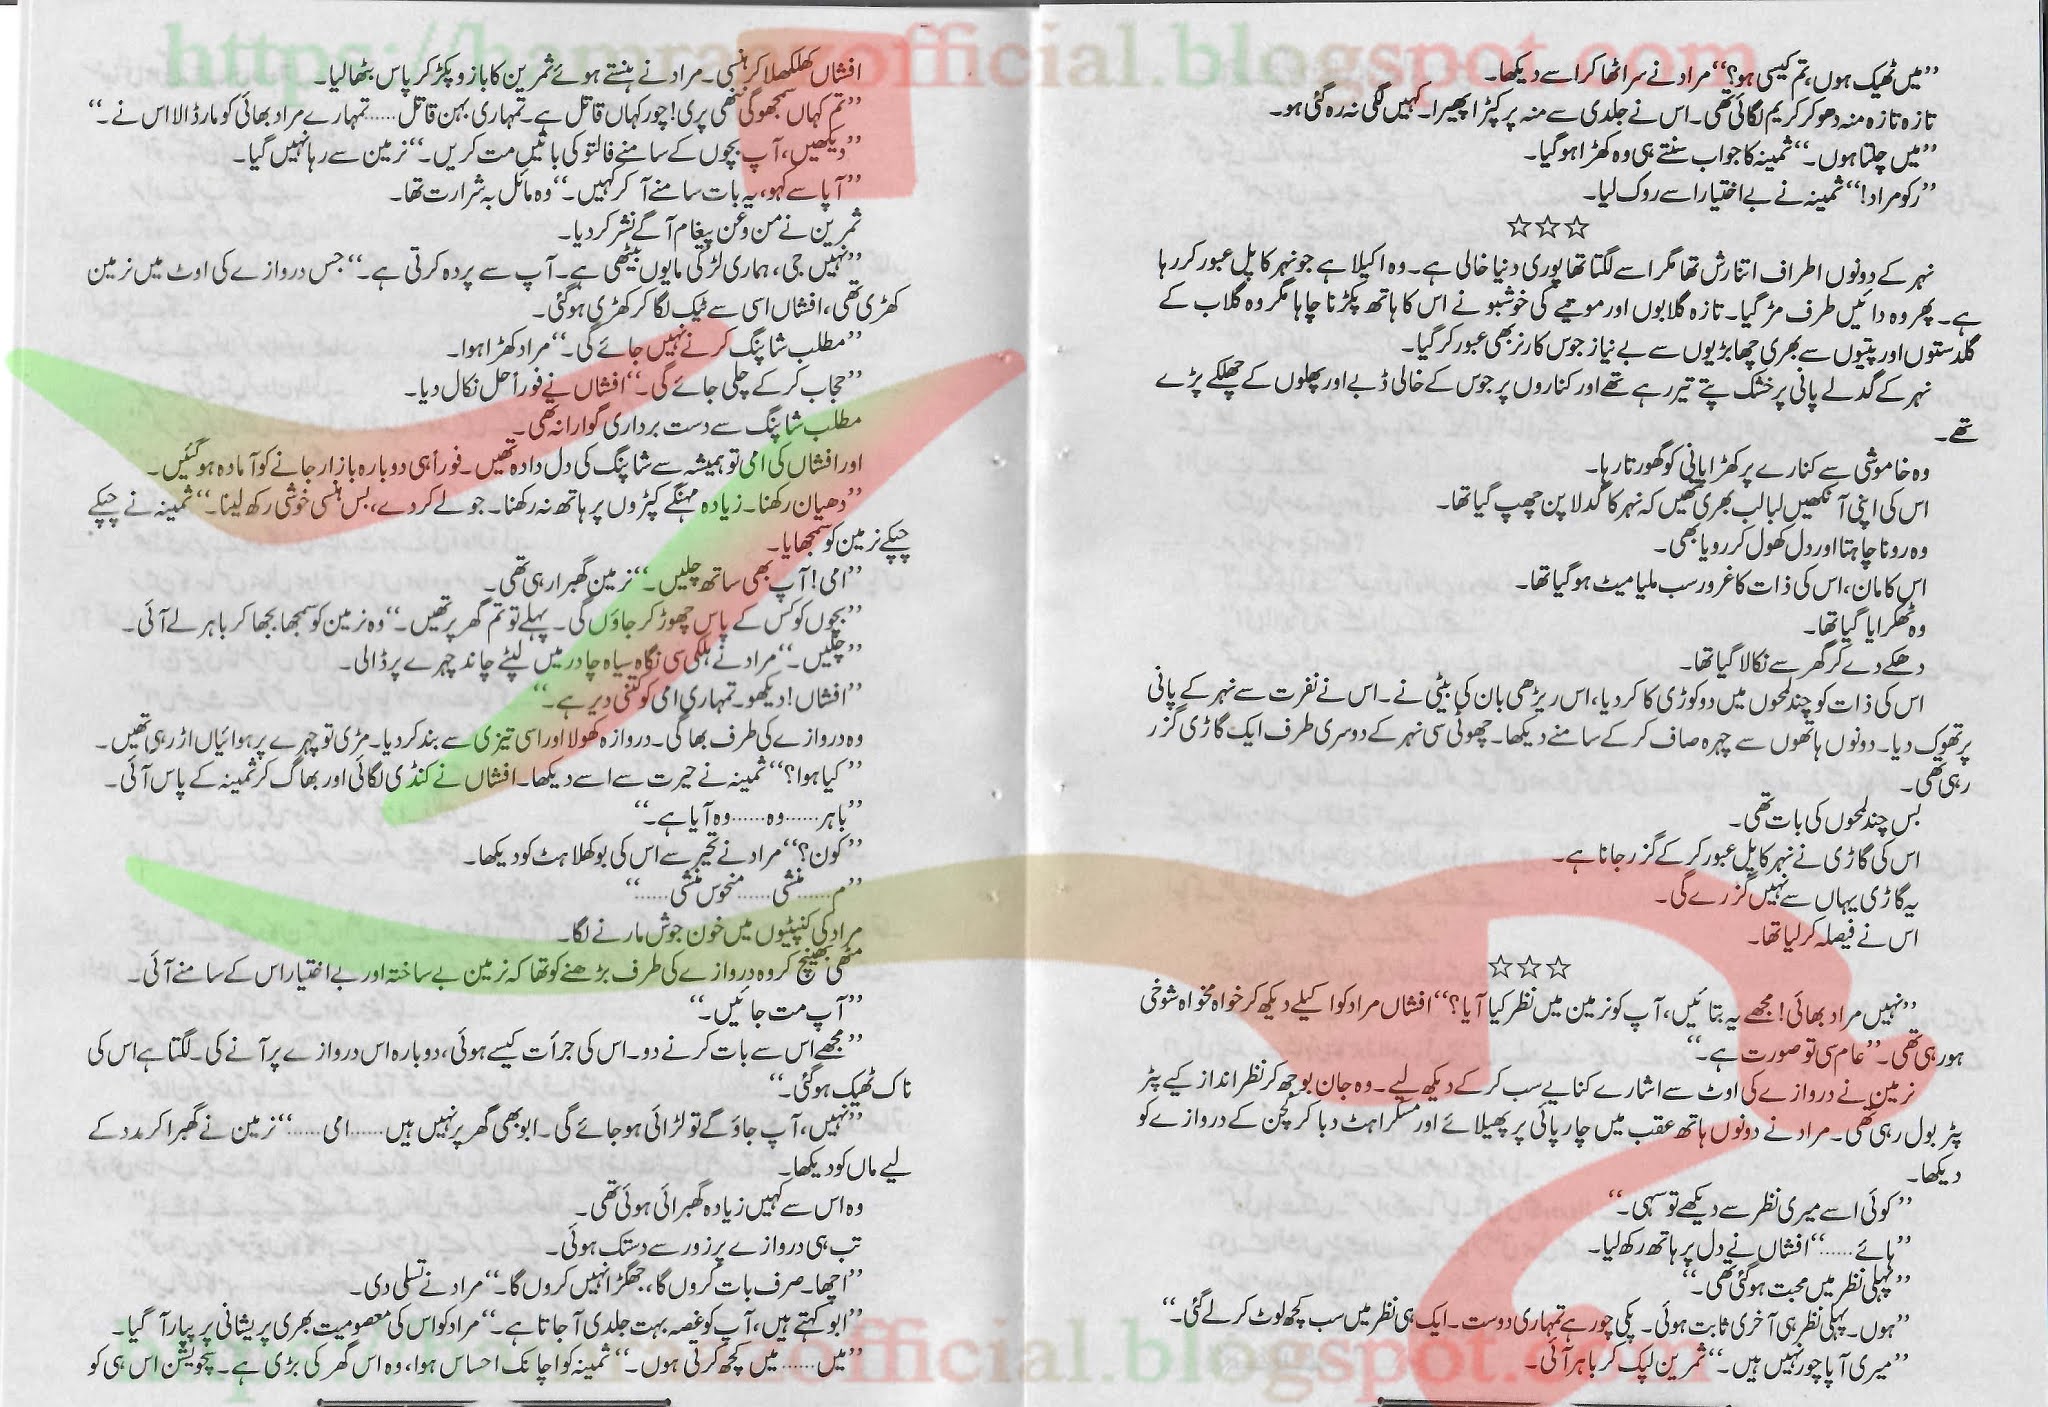 https://hamraazofficial.blogspot.com
’’میں ٹھیک ہوں، تم کیسی ہو؟‘‘ مراد نے سر اٹھا کر اسے دیکھا۔
تازہ تازہ منہ دھو کر کریم لگائی تھی۔ اس نے جلدی سے منہ پر کپڑا پھیرا۔ کہیں لگی نہ رہ گئی ہو۔
’’میں چلتا ہوں۔‘‘ ثمینہ کا جواب سنتے ہی وہ کھڑا ہو گیا۔
’’رکو مراد!‘‘ ثمینہ نے بے اختیار اسے روک لیا۔
☆☆☆
نہر کے دونوں اطراف اتنا رش تھا مگر اسے لگتا تھا پوری دنیا خالی ہے۔ وہ اکیلا ہے جو نہر کا پل عبور کر رہا
ہے۔ پھر وہ دائیں طرف مڑ گیا۔ تازہ گلابوں اور موتیے کی خوشبو نے اس کا ہاتھ پکڑنا چاہا مگر وہ گلاب کے
گلدستوں اور پتیوں سے بھری چھابڑیوں سے بے نیاز جوس کارنر بھی عبور کر گیا۔
نہر کے گدلے پانی پر خشک پتے تیر رہے تھے اور کناروں پر جوس کے خالی ڈبے اور پھلوں کے چھلکے پڑے
تھے۔
وہ خاموشی سے کنارے پر کھڑا پانی کو گھورتا رہا۔
اس کی اپنی آنکھیں لبالب بھری تھیں کہ نہر کا گدلا پن چھپ گیا تھا۔
وہ رونا چاہتا اور دل کھول کر رویا بھی۔
اس کا مان، اس کی ذات کا غرور سب ملیا میٹ ہو گیا تھا۔
وہ ٹھکرایا گیا تھا۔
دھکے دے کر گھر سے نکالا گیا تھا۔
اس کی ذات کو چند لمحوں میں دو کوڑی کا کر دیا، اس ریڑھی بان کی بیٹی نے۔ اس نے نفرت سے نہر کے پانی
پر تھوک دیا۔ دونوں ہاتھوں سے چہرہ صاف کر کے سامنے دیکھا۔ چھوٹی سی نہر کے دوسری طرف ایک گاڑی گزر
رہی تھی۔
بس چند لمحوں کی بات تھی۔
اس کی گاڑی نے نہر کا پل عبور کر کے گزر جانا ہے۔
یہ گاڑی یہاں سے نہیں گزرے گی۔
اس نے فیصلہ کر لیا تھا۔
☆☆☆
’’نہیں مراد بھائی! مجھے یہ بتائیں، آپ کو نرمین میں نظر کیا آیا؟‘‘ افشاں مراد کو اکیلے دیکھ کر خواہ مخواہ شوخی
ہو رہی تھی۔ ’’عام سی تو صورت ہے۔‘‘
نرمین نے دروازے کی اوٹ سے اشارے کنایے سب کر کے دیکھ لیے۔ وہ جان بوجھ کر نظر انداز کیے پٹر
پٹر بول رہی تھی۔ مراد نے دونوں ہاتھ عقب میں چارپائی پر پھیلائے اور مسکراہٹ دبا کر کچن کے دروازے کو
دیکھا۔
’’کوئی اسے میری نظر سے دیکھے تو سہی۔‘‘
’’ہائے ......‘‘ افشاں نے دل پر ہاتھ رکھ لیا۔
’’پہلی نظر میں محبت ہو گئی تھی۔‘‘
’’ہوں۔ پہلی نظر ہی آخری ثابت ہوئی۔ پکی چور ہے تمہاری دوست۔ ایک ہی نظر میں سب کچھ لوٹ کر لے گئی۔‘‘
’’میری آپا چور نہیں ہیں۔‘‘ ثمرین لپک کر باہر آئی۔
افشاں کھلکھلا کر ہنسی۔ مراد نے ہنستے ہوئے ثمرین کا بازو پکڑ کر پاس بٹھا لیا۔
’’تم کہاں سمجھو گی ننھی پری! چور کہاں قاتل ہے۔ تمہاری بہن قاتل ...... تمہارے مراد بھائی کو مار ڈالا اس نے۔‘‘
’’دیکھیں، آپ بچوں کے سامنے فالتو کی باتیں مت کریں۔‘‘ نرمین سے رہا نہیں گیا۔
’’آپا سے کہو، یہ بات سامنے آ کر کہیں۔‘‘ وہ مائل بہ شرارت تھا۔
ثمرین نے من و عن پیغام آگے نشر کر دیا۔
’’نہیں جی، ہماری لڑکی مایوں بیٹھی ہے۔ آپ سے پردہ کرتی ہے۔‘‘ جس دروازے کی اوٹ میں نرمین
کھڑی تھی، افشاں اسی سے ٹیک لگا کر کھڑی ہو گئی۔
’’مطلب شاپنگ کرنے نہیں جائے گی۔‘‘ مراد کھڑا ہوا۔
’’حجاب کر کے چلی جائے گی۔‘‘ افشاں نے فوراً حل نکال دیا۔
مطلب شاپنگ سے دست برداری گوارا نہ تھی۔
اور افشاں کی امی تو ہمیشہ سے شاپنگ کی دل دادہ تھیں۔ فوراً ہی دوبارہ بازار جانے کو آمادہ ہو گئیں۔
’’دھیان رکھنا۔ زیادہ مہنگے کپڑوں پر ہاتھ نہ رکھنا۔ جو لے کر دے، بس ہنسی خوشی رکھ لینا۔‘‘ ثمینہ نے چپکے
چپکے نرمین کو سمجھایا۔
’’امی! آپ بھی ساتھ چلیں۔‘‘ نرمین گھبرا رہی تھی۔
’’بچوں کو کس کے پاس چھوڑ کر جاؤں گی۔ پہلے تو تم گھر پر تھیں۔‘‘ وہ نرمین کو سمجھا بجھا کر باہر لے آئی۔
’’چلیں۔‘‘ مراد نے ہلکی سی نگاہ سیاہ چادر میں لپٹے چاند چہرے پر ڈالی۔
’’افشاں! دیکھو۔ تمہاری امی کو کتنی دیر ہے۔‘‘
وہ دروازے کی طرف بھاگی۔ دروازہ کھولا اور اسی تیزی سے بند کر دیا۔ مڑی تو چہرے پر ہوائیاں اڑ رہی تھیں۔
’’کیا ہوا؟‘‘ ثمینہ نے حیرت سے اسے دیکھا۔ افشاں نے کنڈی لگائی اور بھاگ کر ثمینہ کے پاس آئی۔
’’باہر ...... وہ ...... وہ آیا ہے۔‘‘
’’کون؟‘‘ مراد نے تحیر سے اس کی بوکھلاہٹ کو دیکھا۔
’’م ...... منشی ...... منحوس منشی ......‘‘
مراد کی کنپٹیوں میں خون جوش مارنے لگا۔
مٹھی بھینچ کر وہ دروازے کی طرف بڑھنے کو تھا کہ نرمین بے ساختہ اور بے اختیار اس کے سامنے آئی۔
’’آپ مت جائیں۔‘‘
’’مجھے اس سے بات کرنے دو۔ اس کی جرأت کیسے ہوئی، دوبارہ اس دروازے پر آنے کی۔ لگتا ہے اس کی
ناک ٹھیک ہو گئی۔‘‘
’’نہیں، آپ جاؤ گے تو لڑائی ہو جائے گی۔ ابو بھی گھر پر نہیں ہیں ...... امی ......‘‘ نرمین نے گھبرا کر مدد کے
لیے ماں کو دیکھا۔
وہ اس سے کہیں زیادہ گھبرائی ہوئی تھی۔
تب ہی دروازے پر زور سے دستک ہوئی۔
’’اچھا۔ صرف بات کروں گا، جھگڑا نہیں کروں گا۔‘‘ مراد نے تسلی دی۔
’’ابو کہتے ہیں، آپ کو غصہ بہت جلدی آ جاتا ہے۔‘‘ مراد کو اس کی معصومیت بھری پریشانی پر پیار آ گیا۔
’’میں ...... میں کچھ کرتی ہوں۔‘‘ ثمینہ کو اچانک احساس ہوا، وہ اس گھر کی بڑی ہے۔ سچویشن اس ہی کو
https://hamraazofficial.blogspot.com